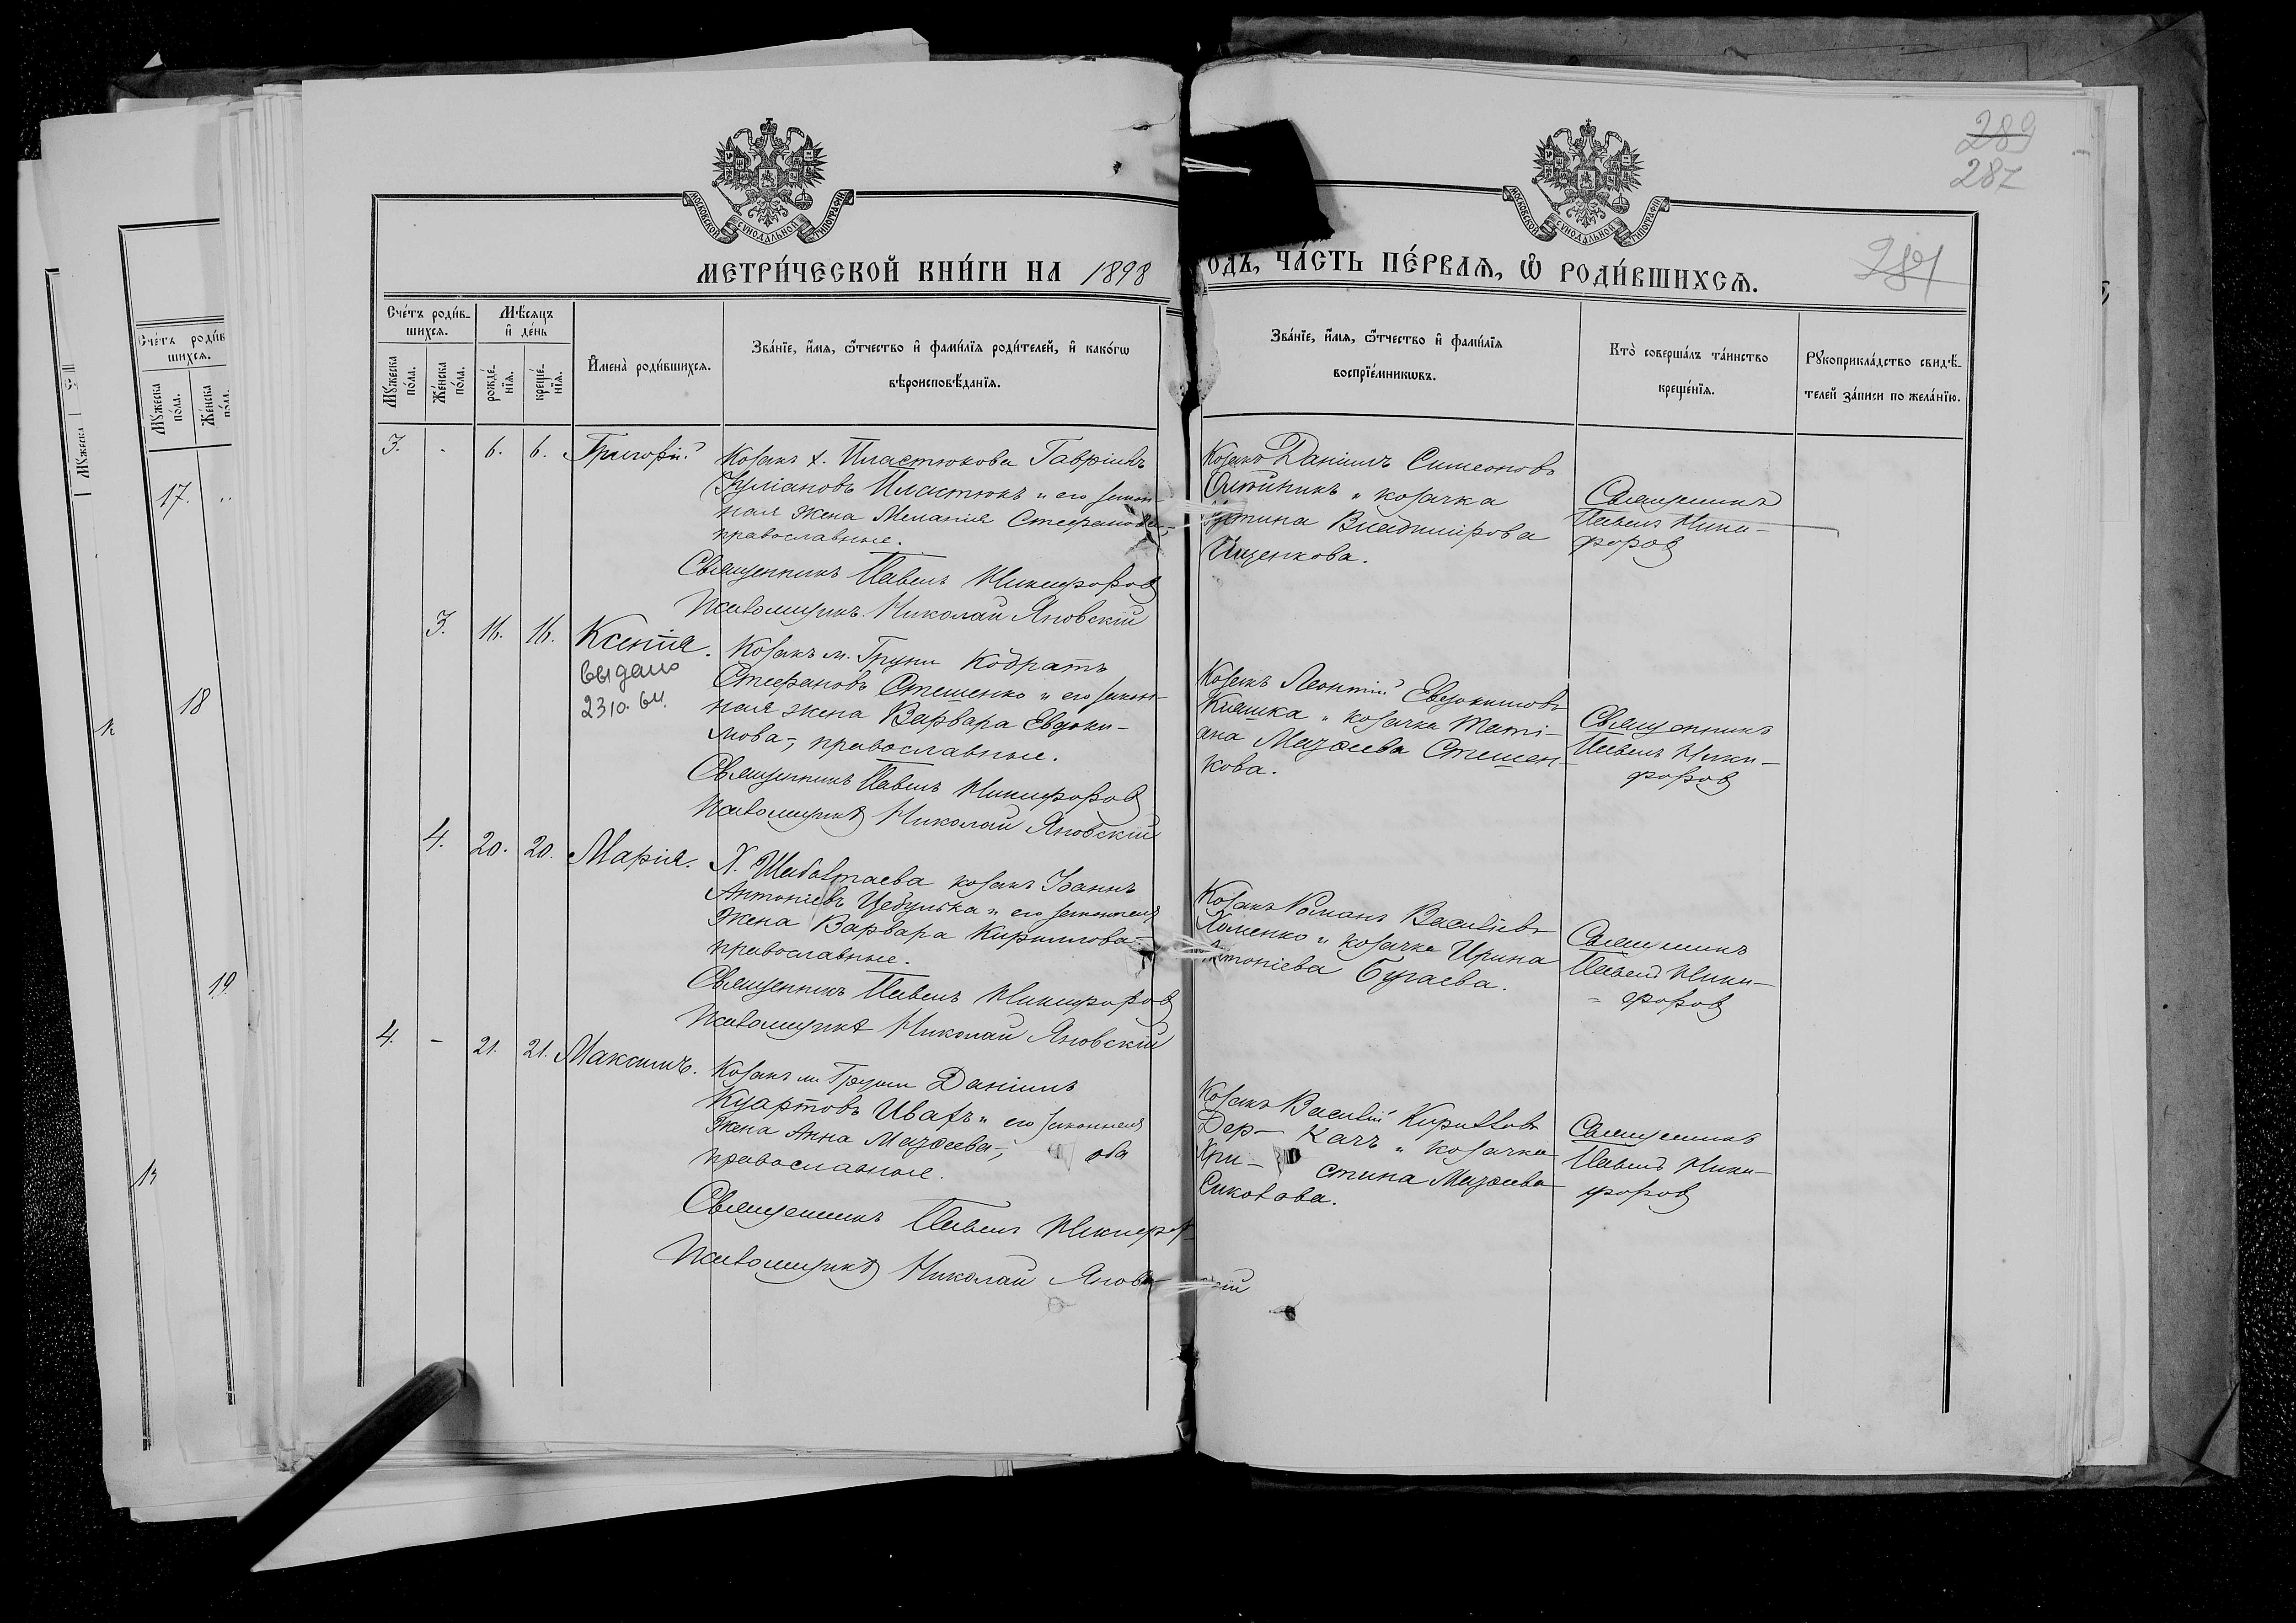 289
287
МОСКОВСКОЙ СУНОДАЛЬНОЙ ТИПОГРАФІИ
МОСКОВСКОЙ СУНОДАЛЬНОЙ ТИПОГРАФІИ
МЕТРИ́ЧЕСКОЙ КНИ́ГИ НА 1898
ОДЪ, ЧА́СТЬ ПЕ́РВАѦ, Ѿ РОДИ́ВШИХСѦ.
Сче́тъ роди́в-
шихсѧ.
Мꙋ́жеска
по́ла.
Же́нска
по́ла.
Мѣ́сѧцъ
и де́нь
рожде́-
нїѧ.
креще́-
нїѧ.
Имена̀ роди́вшихсѧ.
Зва́нїе, и́мѧ, ѻ́тчество и фами́лїѧ роди́телей, и како́гѡ
вѣроисповѣ́данїѧ.
Зва́нїе, и́мѧ, ѻ́тчество и фами́лїѧ
воспрїе́мникѡвъ.
Кто̀ соверша́лъ та́инство
креще́нїѧ.
Рꙋкоприкла́дство свидѣ́-
телей за́писи по жела́нїю.
3. - 6. 6. Григорій
Козакъ х. Пластюкова Гавріилъ
Іуліановъ Пластюкъ и его закон-
ная жена Меланія Стефанова,
православные.
Священникъ Павелъ Никифоровъ
Псаломщикъ Николай Яновскій
Козакъ Даніилъ Симеоновъ
Олійникъ и козачка
Владимірова
Ищенкова.
Священникъ
Павелъ Ники-
форовъ
3. 16. 16. Ксенія.
выдано
23 10. 64.
Козакъ м. Груни Кодратъ
Стефановъ Стешенко и его закон-
ная жена Варвара Евдоки-
мова, православные.
Священникъ Павелъ Никифоровъ
Псаломщикъ Николай Яновскій
Козакъ Леонтій Евдокимовъ
Кияшка и козачка Таті-
ана Матѳеева Стешен-
кова.
Священникъ
Павелъ Ники-
форовъ
4. 20. 20. Марія.
Х. Шаболтаева козакъ Іоаннъ
Антоніевъ Цебулька и его законная
жена Варвара Кириллова,
православные.
Священникъ Павелъ Никифоровъ
Псаломщикъ Николай Яновскій
Козакъ Романъ Василіевъ
Хоменко и козачка Ирина
Антоніева Бугаева.
Священникъ
Павелъ Ники-
форовъ
4. - 21. 21. Максимъ.
Козакъ м. Груни Даніилъ
Куартовъ Ивахъ и его законная
жена Анна Матѳеева, оба
православные.
Священникъ Павелъ Никифор
Псаломщикъ Николай Яновскій
Козакъ Василій Кирилловъ
Дер- качъ и козачка
Хри- стина Матѳеева
Сиколова.
Священникъ
Павелъ Ники-
форовъ
Сче́тъ роди́в
шихсѧ.
Мꙋ́жеска
по́ла.
Же́нска
по́ла.
17.
18
19.